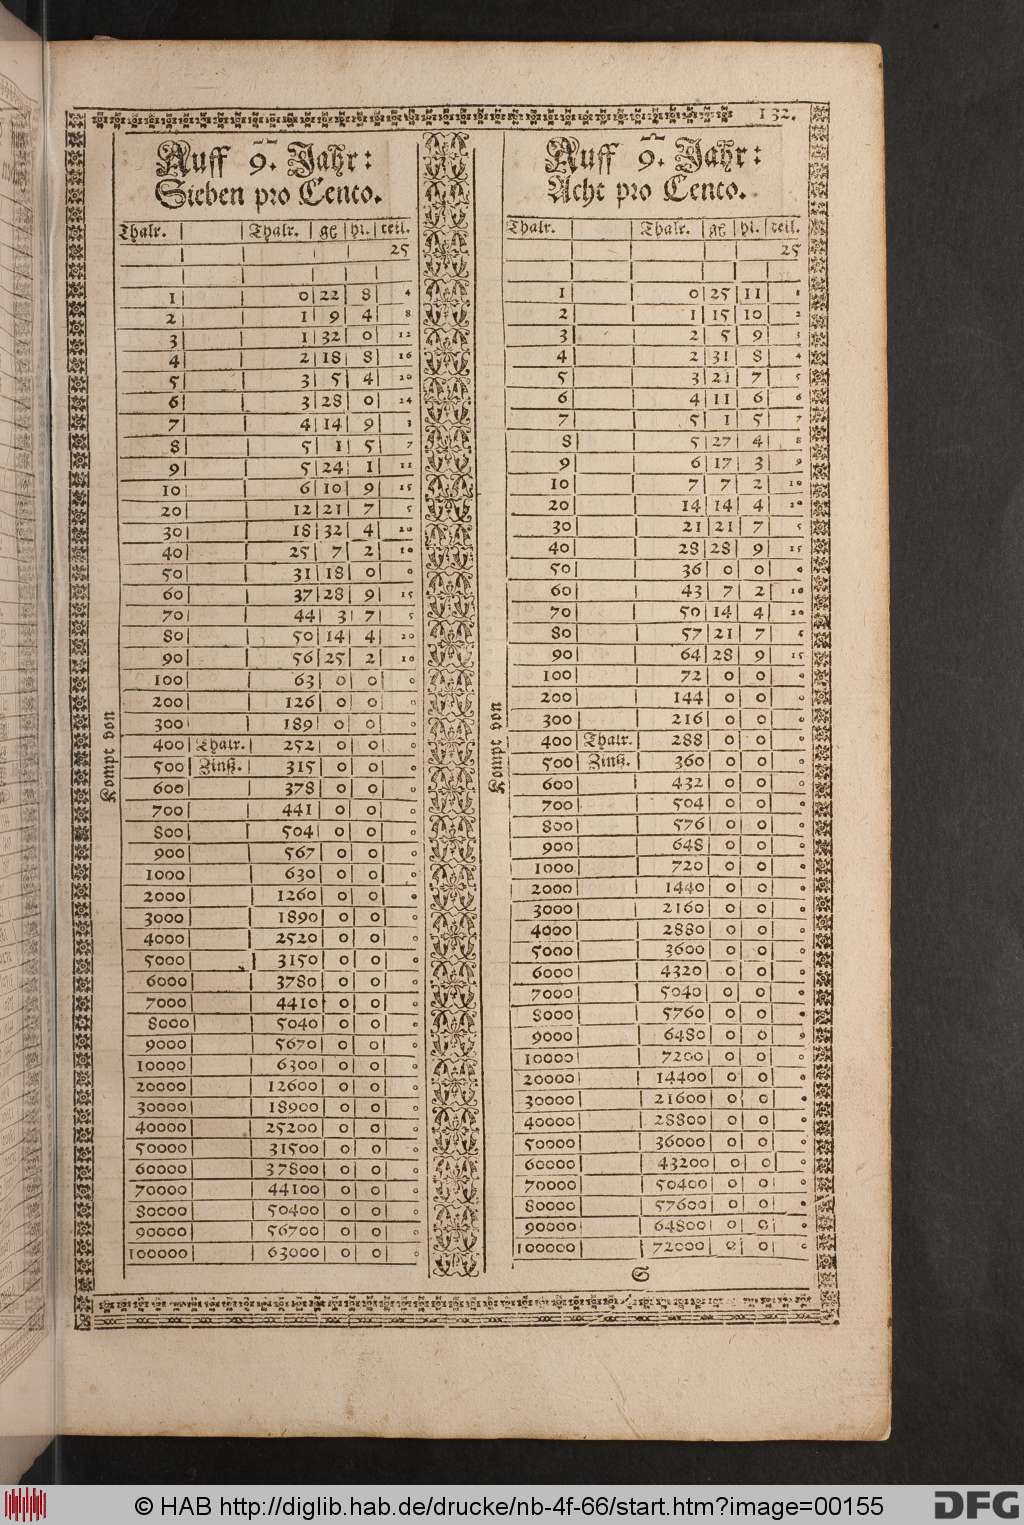 132.
Auff 9. Jahr:
Sieben pro Cento.
Thalr. Thalr. gl hl. teil.
25
1 0 22 8 4
2 1 9 4 8
3 1 32 0 12
4 2 18 8 16
5 3 5 4 20
6 3 28 0 24
7 4 14 9 3
8 5 1 5 7
9 5 24 1 11
10 6 10 9 15
20 12 21 7 5
30 18 32 4 20
40 25 7 2 10
50 31 18 0 0
60 37 28 9 15
70 44 3 7 5
80 50 14 4 20
90 56 25 2 10
100 63 0 0 0
200 126 0 0 0
300 189 0 0 0
400 Thalr. 252 0 0 0
500 Zinß. 315 0 0 0
600 378 0 0 0
700 441 0 0 0
800 504 0 0 0
900 567 0 0 0
1000 630 0 0 0
2000 1260 0 0 0
3000 1890 0 0 0
4000 2520 0 0 0
5000 3150 0 0 0
6000 3780 0 0 0
7000 4410 0 0 0
8000 5040 0 0 0
9000 5670 0 0 0
10000 6300 0 0 0
20000 12600 0 0 0
30000 18900 0 0 0
40000 25200 0 0 0
50000 31500 0 0 0
60000 37800 0 0 0
70000 44100 0 0 0
80000 50400 0 0 0
90000 56700 0 0 0
100000 63000 0 0 0
Kompt von
Auff 9. Jahr:
Acht pro Cento.
Thalr. Thalr. gl hl. teil.
25
1 0 25 11 1
2 1 15 10 2
3 2 5 9 3
4 2 31 8 4
5 3 21 7 5
6 4 11 6 6
7 5 1 5 7
8 5 27 4 8
9 6 17 3 9
10 7 7 2 10
20 14 14 4 20
30 21 21 7 5
40 28 28 9 15
50 36 0 0 0
60 43 7 2 10
70 50 14 4 20
80 57 21 7 5
90 64 28 9 15
100 72 0 0 0
200 144 0 0 0
300 216 0 0 0
400 Thalr. 288 0 0 0
500 Zinß. 360 0 0 0
600 432 0 0 0
700 504 0 0 0
800 576 0 0 0
900 648 0 0 0
1000 720 0 0 0
2000 1440 0 0 0
3000 2160 0 0 0
4000 2880 0 0 0
5000 3600 0 0 0
6000 4320 0 0 0
7000 5040 0 0 0
8000 5760 0 0 0
9000 6480 0 0 0
10000 7200 0 0 0
20000 14400 0 0 0
30000 21600 0 0 0
40000 28800 0 0 0
50000 36000 0 0 0
60000 43200 0 0 0
70000 50400 0 0 0
80000 57600 0 0 0
90000 64800 0 0 0
100000 72000 0 0 0
Kompt von
S
© HAB http://diglib.hab.de/drucke/nb-4f-66/start.htm?image=00155
DFG